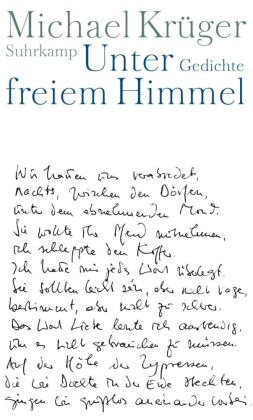 Michael Krüger
Suhrkamp Unter Gedichte
freiem Himmel
Wir hatten uns verabredet,
nachts, zwischen den Dörfern,
unter dem abnehmenden Mond.
Sie wollte den Mond mitnehmen,
ich schleppte den Koffer.
Ich hatte mir jedes Wort überlegt.
Sie sollten leicht sein, aber nicht vage,
bestimmt, aber nicht zu schwer.
Das Wort Liebe lernte ich auswendig,
um es nicht gebrauchen zu müssen.
Auf der Höhe der Zypressen,
die wie Dochte in der Erde steckten,
gingen wir grußlos aneinander vorbei.